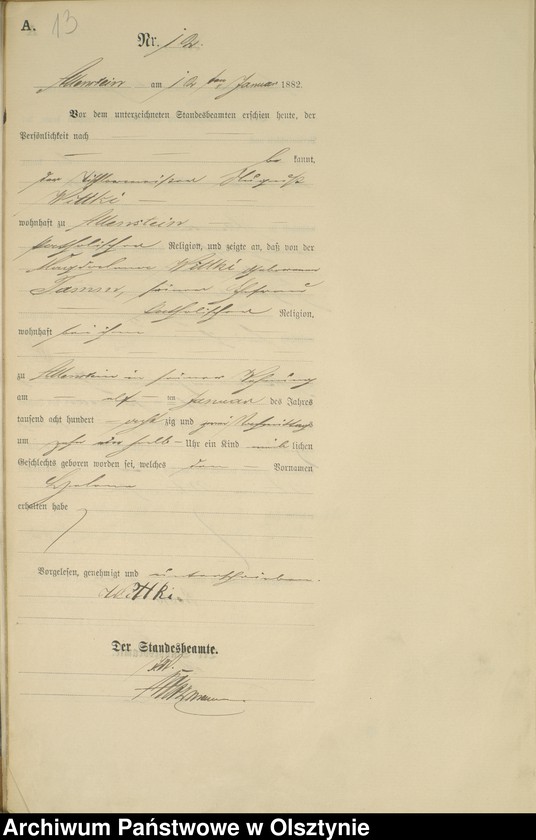 A. 13
Nr. 12.
Allenstein am 12ten Januar 1882.
Vor dem unterzeichneten Standesbeamten erschien heute, der
Persönlichkeit nach
be kannt,
der Tischlermeister August
Wittki
wohnhaft zu Allenstein
katholischer Religion, und zeigte an, daß von der
Magdalena Wittki geborenen
seiner Ehefrau
katholischer Religion,
wohnhaft bei ihm
zu Allenstein in seiner Wohnung
am elf ten Januar des Jahres
tausend acht hundert acht zig und zwei Nachmittags
um zehn ein halb Uhr ein Kind weib lichen
Geschlechts geboren worden sei, welches den Vornamen
Helene
erhalten habe
Vorgelesen, genehmigt und unterschrieben.
Wittki.
Der Standesbeamte.
Archiwum Państwowe w Olsztynie